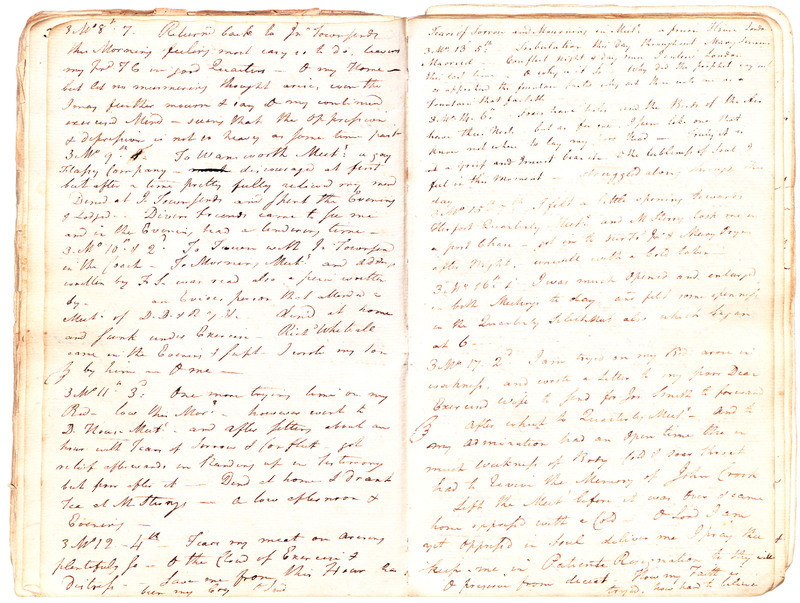 3 Mo 8th 7. Return'd back to Jno Townsends
this Morning feeling most easy so to do, leaving
my frd T C in good Quarters - O my Home -
but let no murmering thought arise, even tho
I may further mourn & say O my continued
exercised Mind - seems that the oppression
& depression is not so heavy as some time past
3 Mo 9th 1 To Wansworth Meetg a gay
Flashy Company - discouraged at first
but after a time pretty fully relieved my mind
Dined at J. Townsends and Spent the Evening
& Lodged - Divers friends came to see me
and in the Evening had a tendering time -
3 Mo 10th 2d To Town with Jno Townsend
in the Coach To Morning Meetg and Address
written by F.S. was read also a piece written
by an Envious person that attended a
Meetg of D.D. & R of Y. Dined at home
and sunk under Exercise - Richd
came in the Evening & Supt I wrote my Son
J by him - O me -
3 Mo 11th 3d: One more trying time on my
Bed - low this Morg - however went to
D. House Meetg - and after setting about an
hour with Tears of Sorrow & Conflict - got
relief afterwards in Standing up in Testimony
but poor after it - Dined at home & drank
Tea at M Sterrys - A low afternoon &
Evening -
3 Mo 12 - 4th Tears my meat on
plentifully so - O the Cloud of Exercise &
Distress - Save me from this Hour has
been my Cry
Tears of Sorrow and Mourning in Meetg a
3 Mo 13 5th Tribulation this day throughout Many
Married - Conflict Night & day
this lost time - O why is it so! Why did the prophet cry out
or
fountain that faileth
3 Mo 14. 6th Foxes have holes and the Birds of the Air
have their Nests. but as for me I seem like one that
know not where to lay my poor Head - Truly it is
at a Grief and Inward The tribblings of Soul I
feel in this Moment - struggled along through the
day
3 Mo 15th 7th I felt a little opening towards
Quarterly Meetg and M Sterry took me in
a post Chair - got in to Jno & Mary
after Night, unwell with a Cold taken
3 Mo 16th 1 I was much opened and enlarged
in both Meetings to day, and felt some openness
in the Quarterly Select Meetg also which began
at 6 -
3 Mo 17 2d I am tryed on my Bed arose in
weakness, and wrote a Letter to my poor Dear
Exercised Wife to send for Jos Smith to forward
After whent to Quarterly Meetg - And to
my admiration had an Open time tho in
much weakness of Body Cold & soar throat
had to revive the Memory of John Crook
Left the Meetg before it was Over & came
home oppress'd with a Cold - O Lord I am
yet Oppress'd in Soul deliver me I pray thee
keep me in Patience & Resignation to thy will
O preserve from deceit - How my Faith is
tryed, how hard to believe